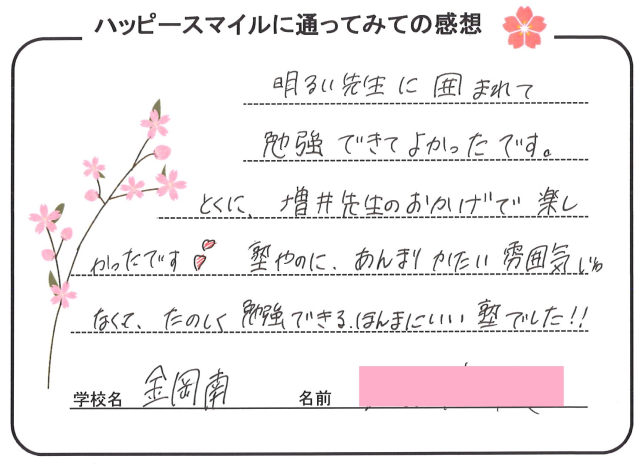 ハッピースマイルに通ってみての感想
明るい先生に囲まれて
勉強できてよかったです。
とくに、増井先生のおかげで楽し
かったです 塾やのに、あんまりかたい雰囲気じゃ
なくて、たのしく勉強できる、ほんまにいい塾でした!!
学校名 金岡南 名前